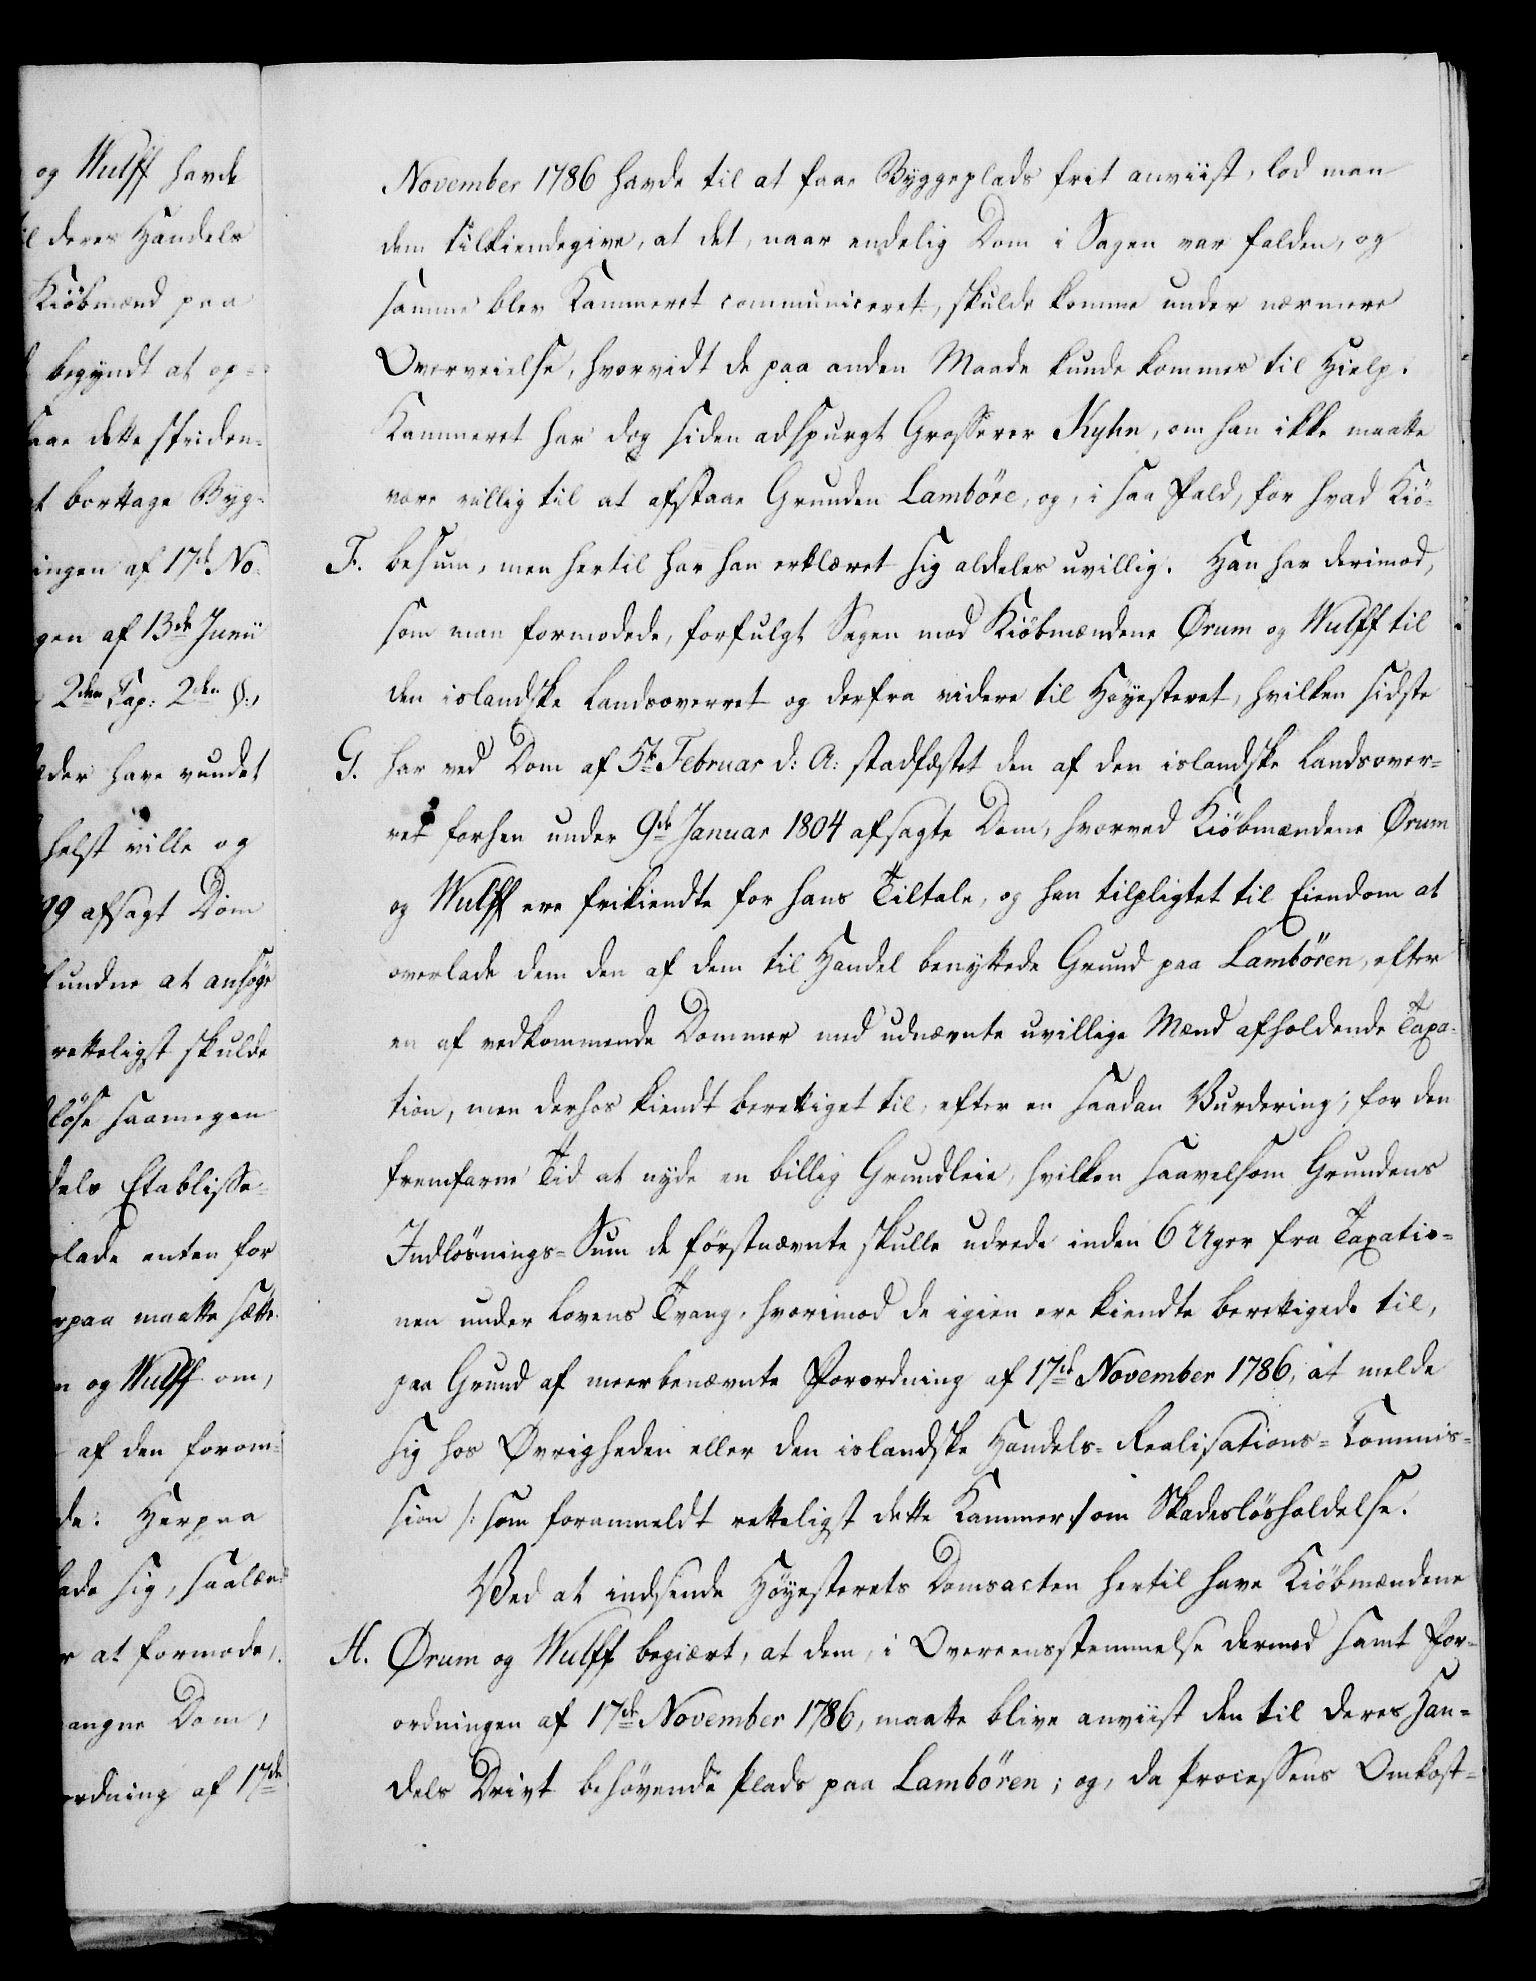 og Wulff havde
deres Handels
Kiöbmænd paa
begyndt at op-
dette friden-
borttage Byg-
ingen af 17de No-
gen af 13de Junii
2den Cap: 2den §.,
have vundet
helst ville og
99 afsagt Dom
at ansøge
retteligst skulde
saamegen
dels Etablisse-
lade enten for
rpaa maatte sætte
og Wulff om,
af den forom-
de: Herpaa
lade sig, saalæn-
at formode,
angne Dom,
ordning af 17de
November 1786 havde til at faae Byggeplads frit anviist, lod man
dem tilkiendegive, at det, naar endelig Dom i Sagen var falden, og
samme blev Kammeret communiceret, skulde komme under nærmere
Overveielse, hvorvidt de paa anden Maade kunde kommes til Hielp.
Kammeret har dog siden adspurgt Grosserer Kyhn, om han ikke maatte
være villig til at afstaae Grunden Lambøre, og, i saa Fald, for hvad Kiö-
F. besum, men hertil har han erklæret sig aldeles uvillig. Han har derimod,
som man formodede, forfulgt Sagen mod Kiöbmændene Ørum og Wulff til
den islandske Landsoverret og derfra videre til Høyesteret, hvilken sidste
G. har ved Dom af 5te Februar d: A: stadfæstet den af den islandske Landsover-
ret forhen under 9de Januar 1804 afsagte Dom, hvorved Kiöbmændene Ørum
og Wulff ere frikiendte for hans Tiltale, og han tilpligtet til Eiendom at
overlade dem den af dem til Handel benyttede Grund paa Lambören, efter
en af vedkommende Dommer med udnævnte uvillige Mænd afholdende Taxa-
tion, men derhos kiendt berettiget til, efter en saadan Vurdering, for den
fremfarne Tid at nyde en billig Grundleie, hvilken saavelsom Grundens
Indlösnings-Sum de förstnævnte skulle udrede inden 6 Uger fra Taxatio-
nen under Lovens Tvang, hvorimod de igien ere kiendte berettigede til,
paa Grund af meerbenævnte Forordning af 17de November 1786, at melde
sig hos Øvrigheden eller den islandske Handels-Realisations-Commis-
sion /: som foranmeldt retteligst dette Kammer :/ om Skadeslösholdelse.
Ved at indsende Höyesterets Domsacten hertil have Kiöbmændene
H. Ørum og Wulff begiært, at dem, i Overeensstemmelse dermed samt For-
ordningen af 17de November 1786, maatte blive anviist den til deres Han-
dels Drivt behövende Plads paa Lambören; og, da Processens Omkost-